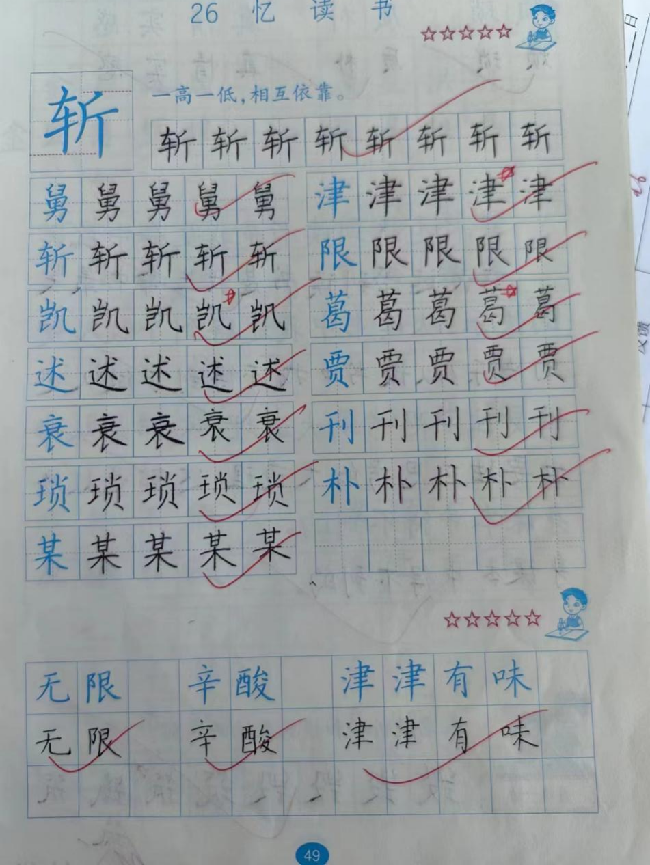 26 忆读书
斩 一高一低，相互依靠。
斩 斩 斩 斩 斩 斩 斩 斩
舅 舅 舅 舅 舅 津 津 津 津 津
斩 斩 斩 斩 斩 限 限 限 限 限
凯 凯 凯 凯 凯 葛 葛 葛 葛 葛
述 述 述 述 述 贾 贾 贾 贾 贾
衰 衰 衰 衰 衰 刊 刊 刊 刊 刊
琐 琐 琐 琐 琐 朴 朴 朴 朴 朴
某 某 某 某 某
无限 辛酸 津津有味
无限 辛酸 津津有味
49